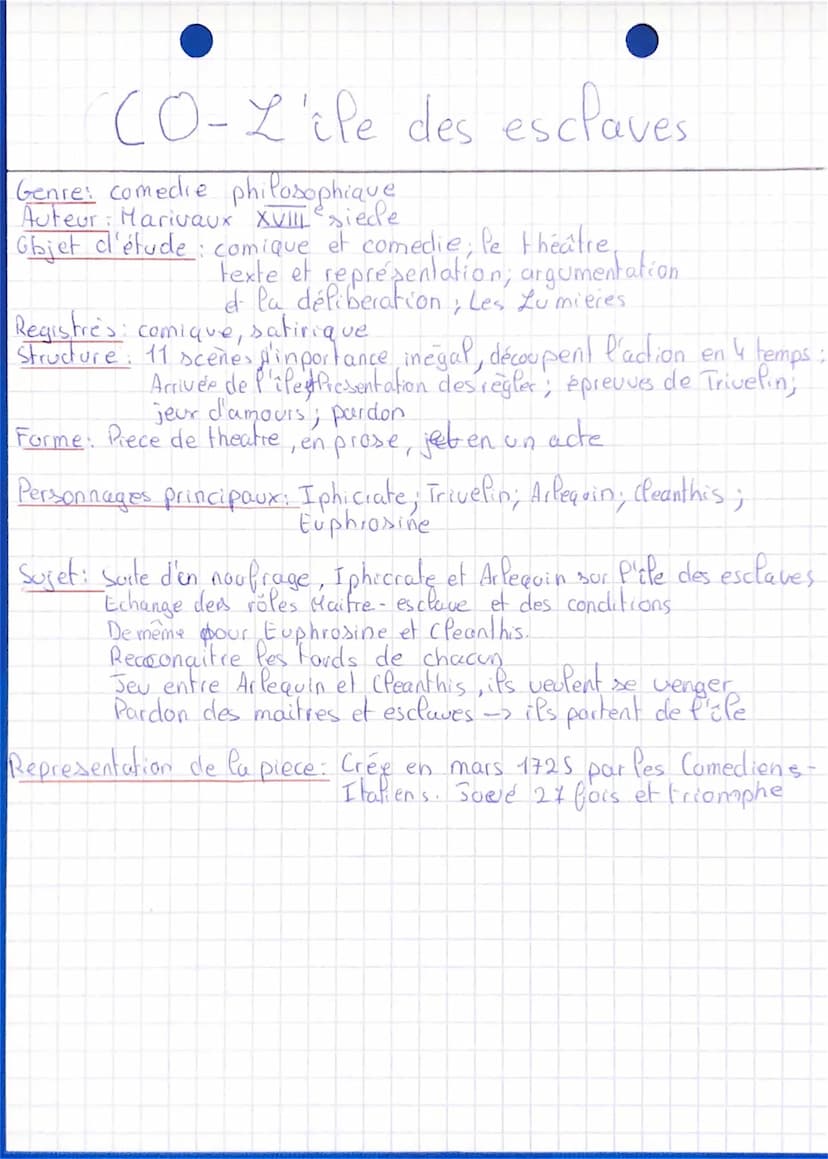 CO - L'île des esclaves
Genre: comedie philosophique
Auteur: Marivaux XVIIIe siècle
Objet d'étude: comique et comedie; le théâtre,
texte et représentation; argumentation
et la délibération; Les Lumieres
Registres: comique, satirique
Structure: 11 scènes d'inportance inégal, découpent l'action en 4 temps:
Arrivée de l'île et Présentation des règles; épreuves de Trivelin;
jeux d'amours; pardon
Forme: Piece de theatre, en prose, et en un acte
Personnages principaux: Iphicrate; Trivelin; Arlequin; Cleanthis;
Euphrosine
Sujet: Suite d'un noofrage, Iphicrate et Arlequin sur l'île des esclaves
Echange des rôles Maitre-esclave et des conditions
De même pour Euphrosine et Cleanthis.
Reconaitre les tords de chacun
Jeu entre Arlequin et Cleanthis, ils veulent se venger
Pardon des maitres et esclaves -> ils partent de l'île
Representation de la piece: Crée en mars 1725 par les Comediens-
Italiens. Joué 21 fois et triomphe